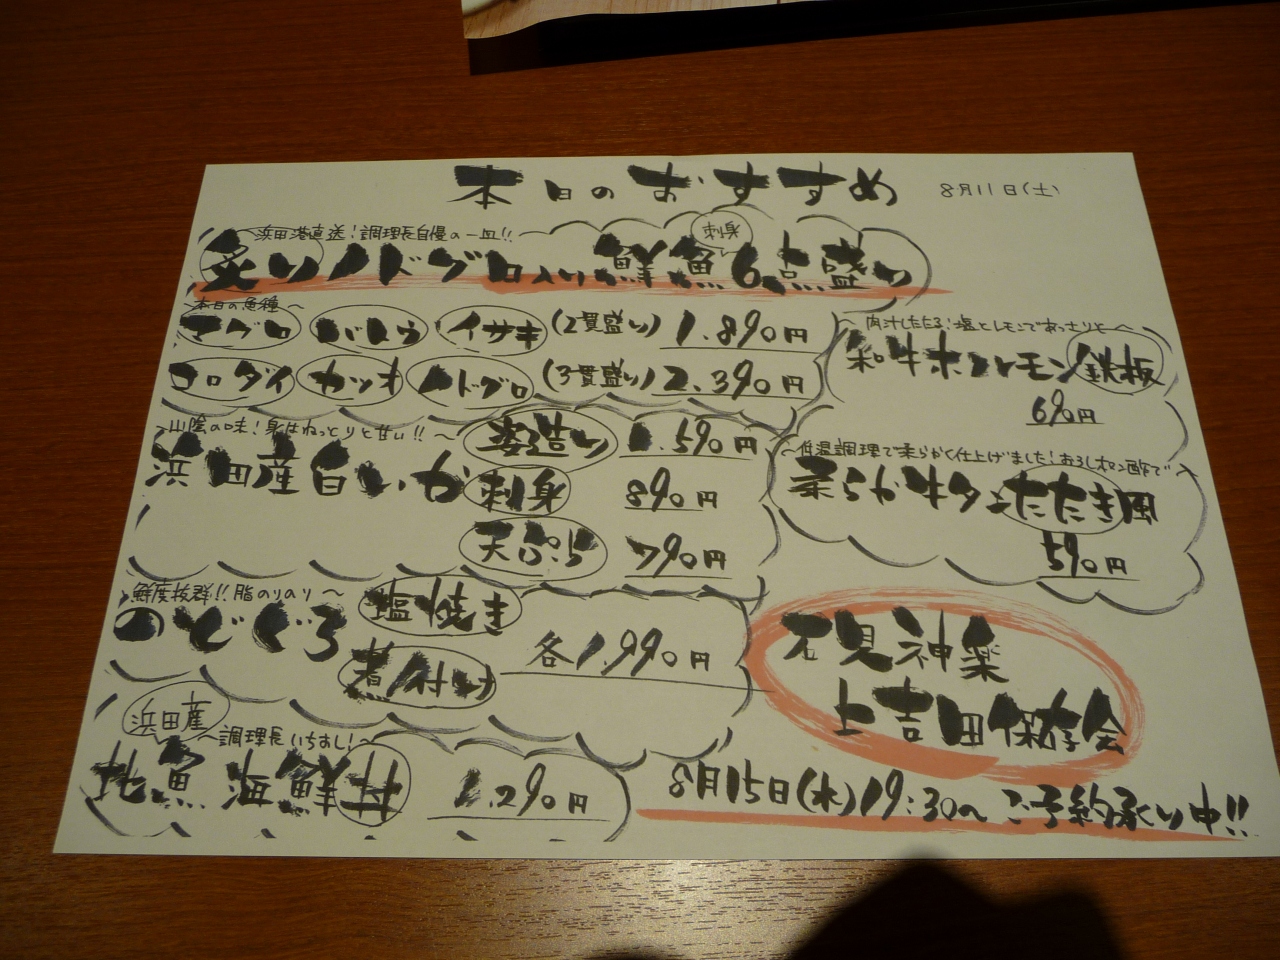 本日のおすすめ
8月11日(土)
浜田港直送!調理長自慢の一皿!!
炙りノドグロ入り鮮魚6点盛り
刺身
本日の魚種〜
マグロ バトウ イサキ (2貫盛り) 1.890円
コロダイ カツオ ノドグロ (3貫盛り) 2.390円
〜山陰の味!身はねっとりと甘い!!〜
浜田産白いか
姿造り 1.590円
刺身 890円
天ぷら 790円
鮮度抜群!!脂のりのり〜
のどぐろ
塩焼き
煮付け
各1.990円
浜田産
〜調理長いちおし!〜
地魚海鮮丼 1.290円
〜肉汁したたる!塩とレモンであっさりと〜
和牛ホルモン鉄板
690円
〜低温調理で柔らかく仕上げました!おろしポン酢で
柔らか牛タンたたき風
590円
石見神楽
上吉田保存会
8月15日(水)19:30〜ご予約承り中!!